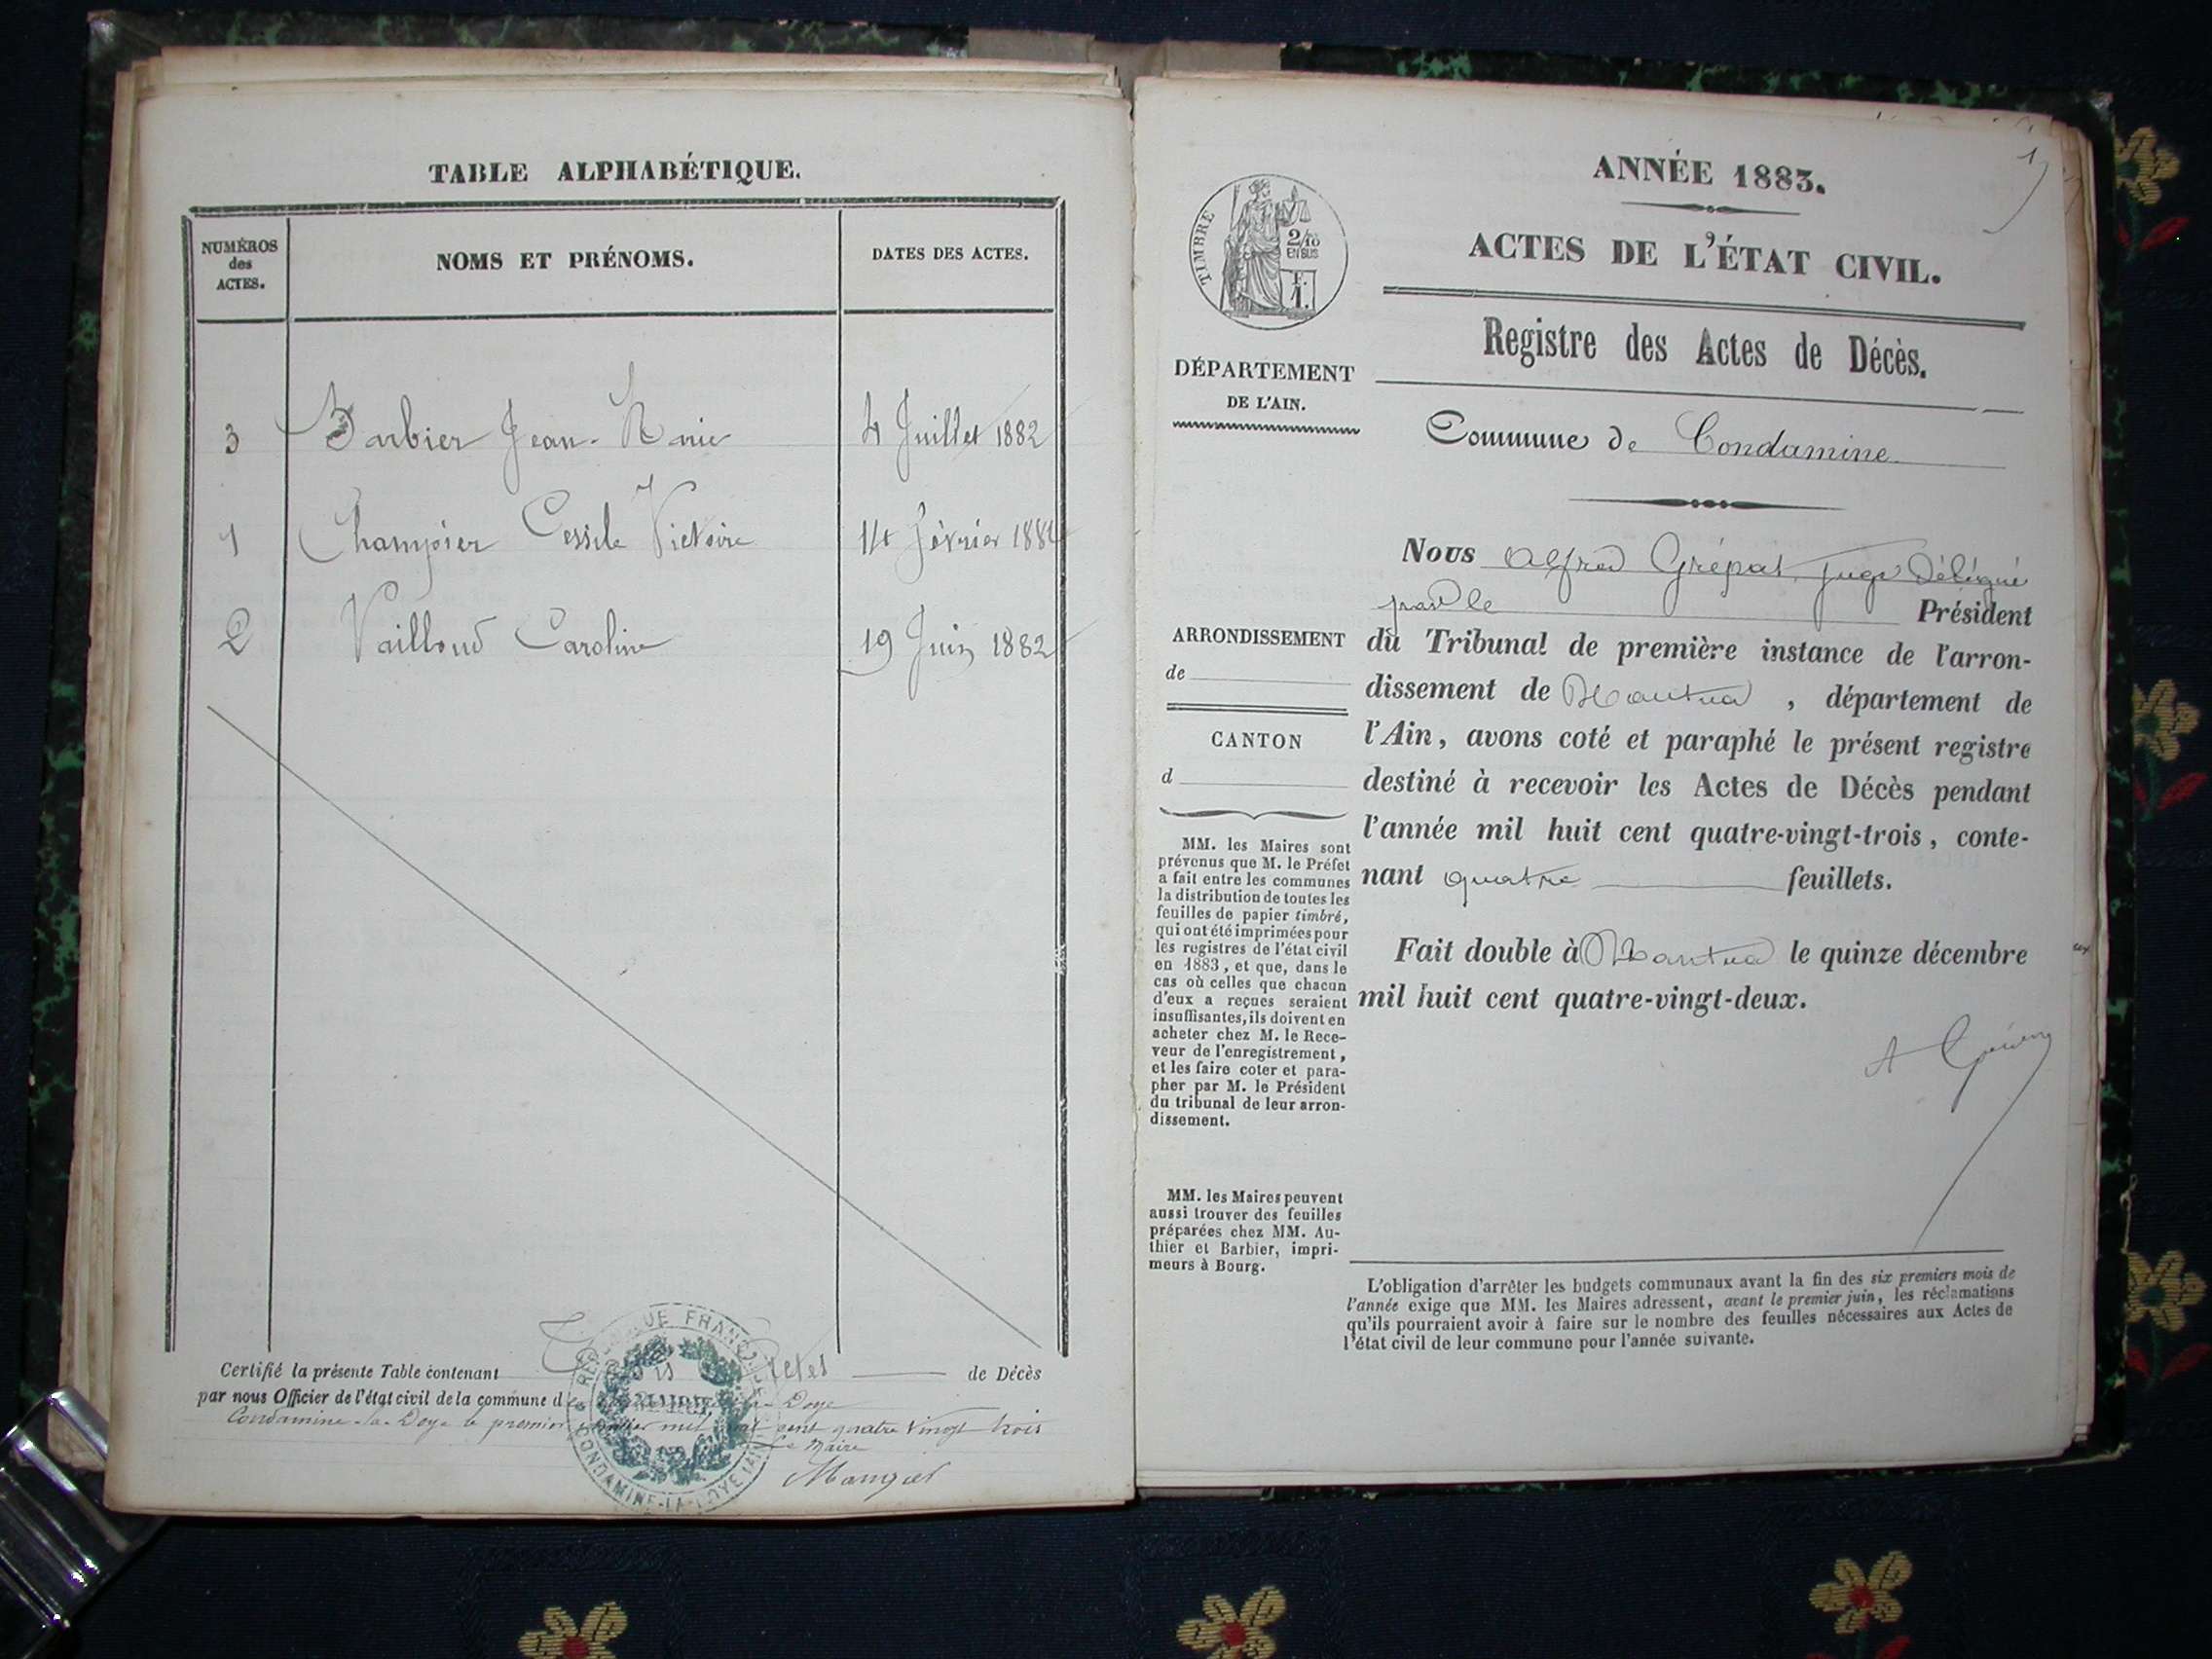 TABLE ALPHABÉTIQUE.
NUMÉROS
des
ACTES.
NOMS ET PRÉNOMS.
DATES DES ACTES.
3 Barbier Jean-Marie 4 Juillet 1882
1 Champier Cessile Victoire 14 février 1882
2 Vailloud Caroline 19 Juin 1882
Certifié la présente Table contenant actes de Décès
par nous Officier de l'état civil de la commune d Doye
Condamine-la-Doye le premier mil cent quatre vingt trois
Le Maire
RÉPUBLIQUE FRANÇAISE
MAIRIE
CONDAMINE-LA-DOYE (AIN)
ANNÉE 1883.
ACTES DE L'ÉTAT CIVIL.
Registre des Actes de Décès.
Commune de Condamine
TIMBRE
2/10
EN SUS
F.
1.
DÉPARTEMENT
DE L'AIN.
Nous Alfred Juge Délégué
par le Président
du Tribunal de première instance de l'arron-
dissement de Nantua, département de
l'Ain, avons coté et paraphé le présent registre
destiné à recevoir les Actes de Décès pendant
l'année mil huit cent quatre-vingt-trois, conte-
nant quatre feuillets.
Fait double à Nantua le quinze décembre
mil huit cent quatre-vingt-deux.
ARRONDISSEMENT
de
CANTON
d
MM. les Maires sont
prévenus que M. le Préfet
a fait entre les communes
la distribution de toutes les
feuilles de papier timbré,
qui ont été imprimées pour
les registres de l'état civil
en 1883, et que, dans le
cas où celles que chacun
d'eux a reçues seraient
insuffisantes, ils doivent en
acheter chez M. le Rece-
veur de l'enregistrement,
et les faire coter et para-
pher par M. le Président
du tribunal de leur arron-
dissement.
MM. les Maires peuvent
aussi trouver des feuilles
préparées chez MM. Au-
thier et Barbier, impri-
meurs à Bourg.
L'obligation d'arrêter les budgets communaux avant la fin des six premiers mois de
l'année exige que MM. les Maires adressent, avant le premier juin, les réclamations
qu'ils pourraient avoir à faire sur le nombre des feuilles nécessaires aux Actes de
l'état civil de leur commune pour l'année suivante.